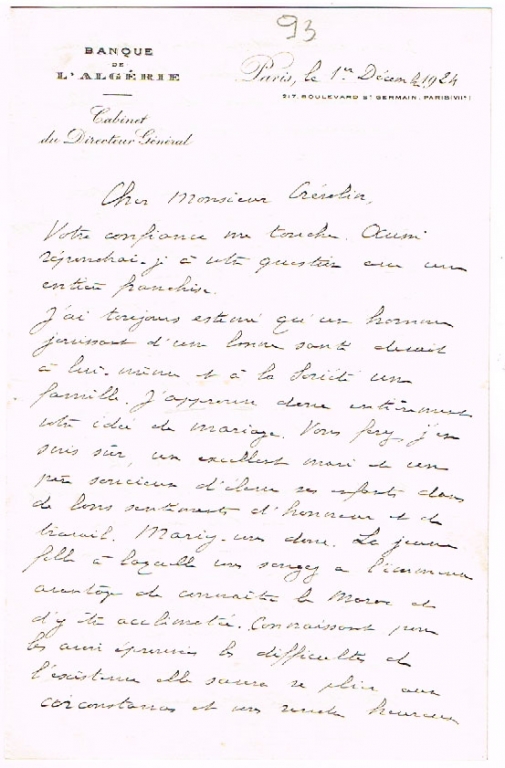 93
BANQUE
DE
L'ALGÉRIE
Cabinet
du Directeur Général
Paris, le 1er Décemb. 1924
217, BOULEVARD ST GERMAIN, PARIS (VIIe)
Cher Monsieur
Votre confiance me touche. Aussi
répondrai-j à votre question avec une
entière franchise.
J'ai toujours estimé qu'un homme
jouissant d'une bonne santé devait
à lui-même et à la Société une
famille. J'approuve donc entièrement
votre idée de mariage. Vous ferez, j'en
suis sûr, un excellent mari et un
père soucieux d'élever ses enfants dans
de bons sentiments d'honneur et de
travail. Mariez-vous donc. La jeune
fille à laquelle vous songez a l'énorme
avantage de connaître le Maroc et
d'y être acclimatée. Connaissant pour
les avoir éprouvées les difficultés de
l'existence elle saura se plier aux
circonstances et vous rendre heureux